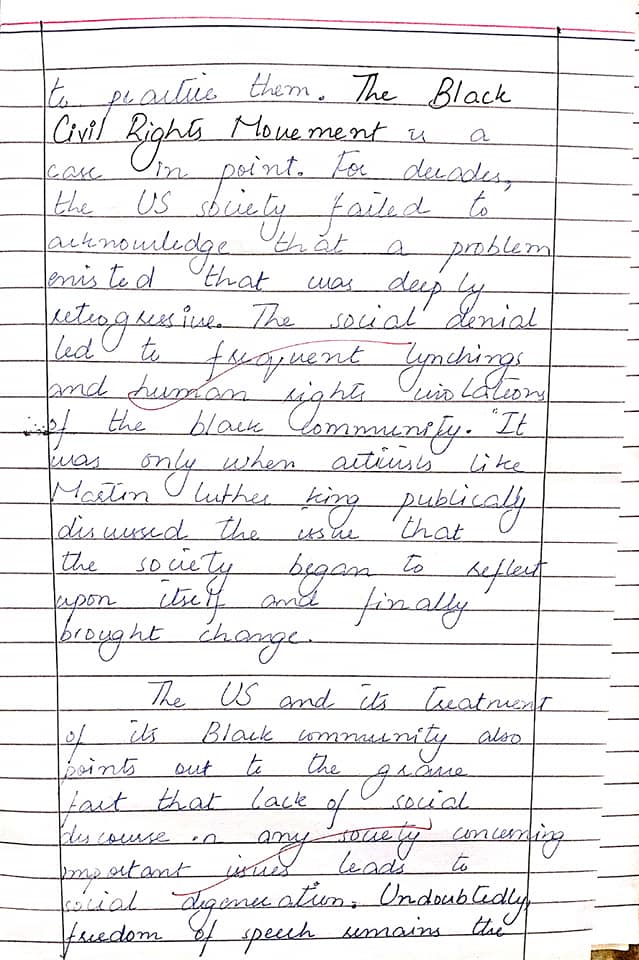 to practice them. The Black
Civil Rights Movement is a
case in point. For decades,
the US society failed to
acknowledge that a problem
existed that was deeply
retrogressive. The social denial
led to frequent lynchings
and human rights violations
of the black community. "It
was only when activists like
Martin Luther King publically
discussed the issue that
the society began to reflect
upon itself and finally
brought change.
The US and its treatment
of its Black community also
points out to the grave
fact that lack of social
discourse in any society concerning
important issues leads to
social degeneration. Undoubtedly,
freedom of speech remains the